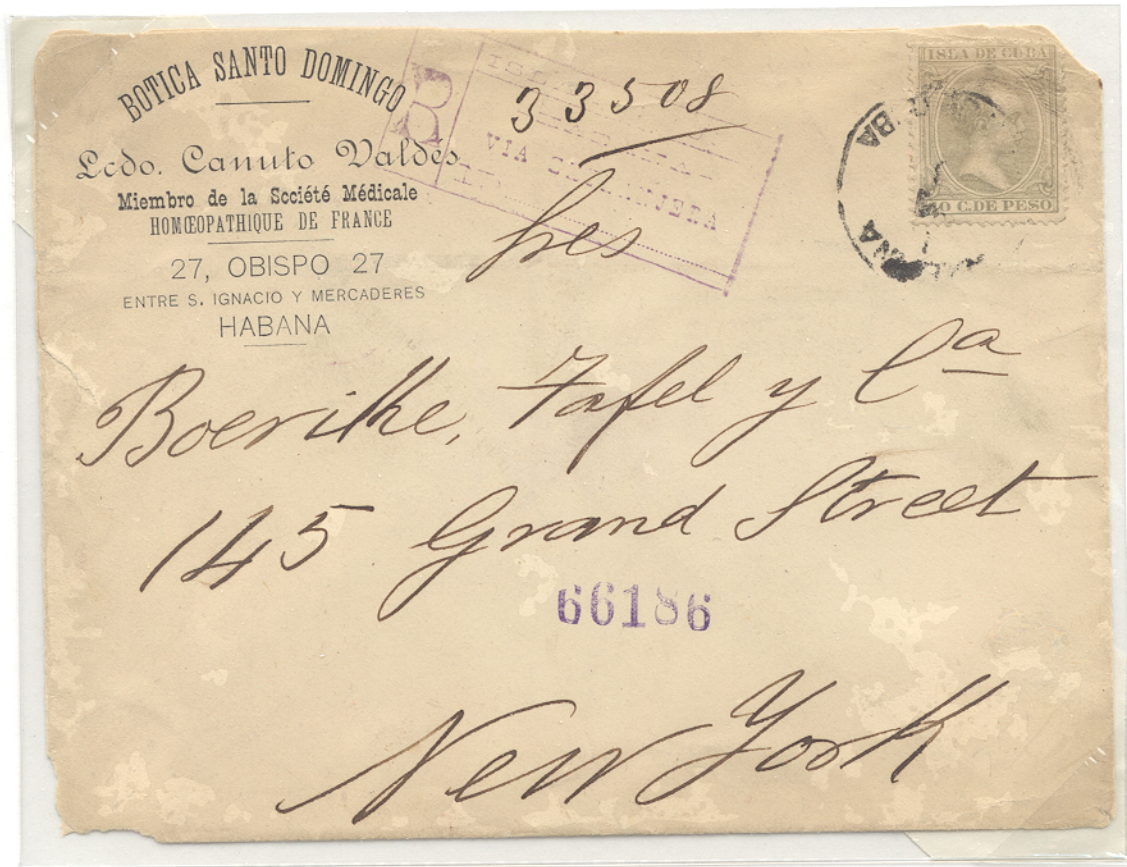 BOTICA SANTO DOMINGO
Lcdo. Canuto Valdes
Miembro de la Société Médicale
HOMŒOPATHIQUE DE FRANCE
27, OBISPO 27
ENTRE S. IGNACIO Y MERCADERES
HABANA
R
ISLA
VIA
33508
ISLA DE CUBA
10 C. DE PESO
Sres
Boerike, Tafel y Ca
145 Grand Street
66186
New York